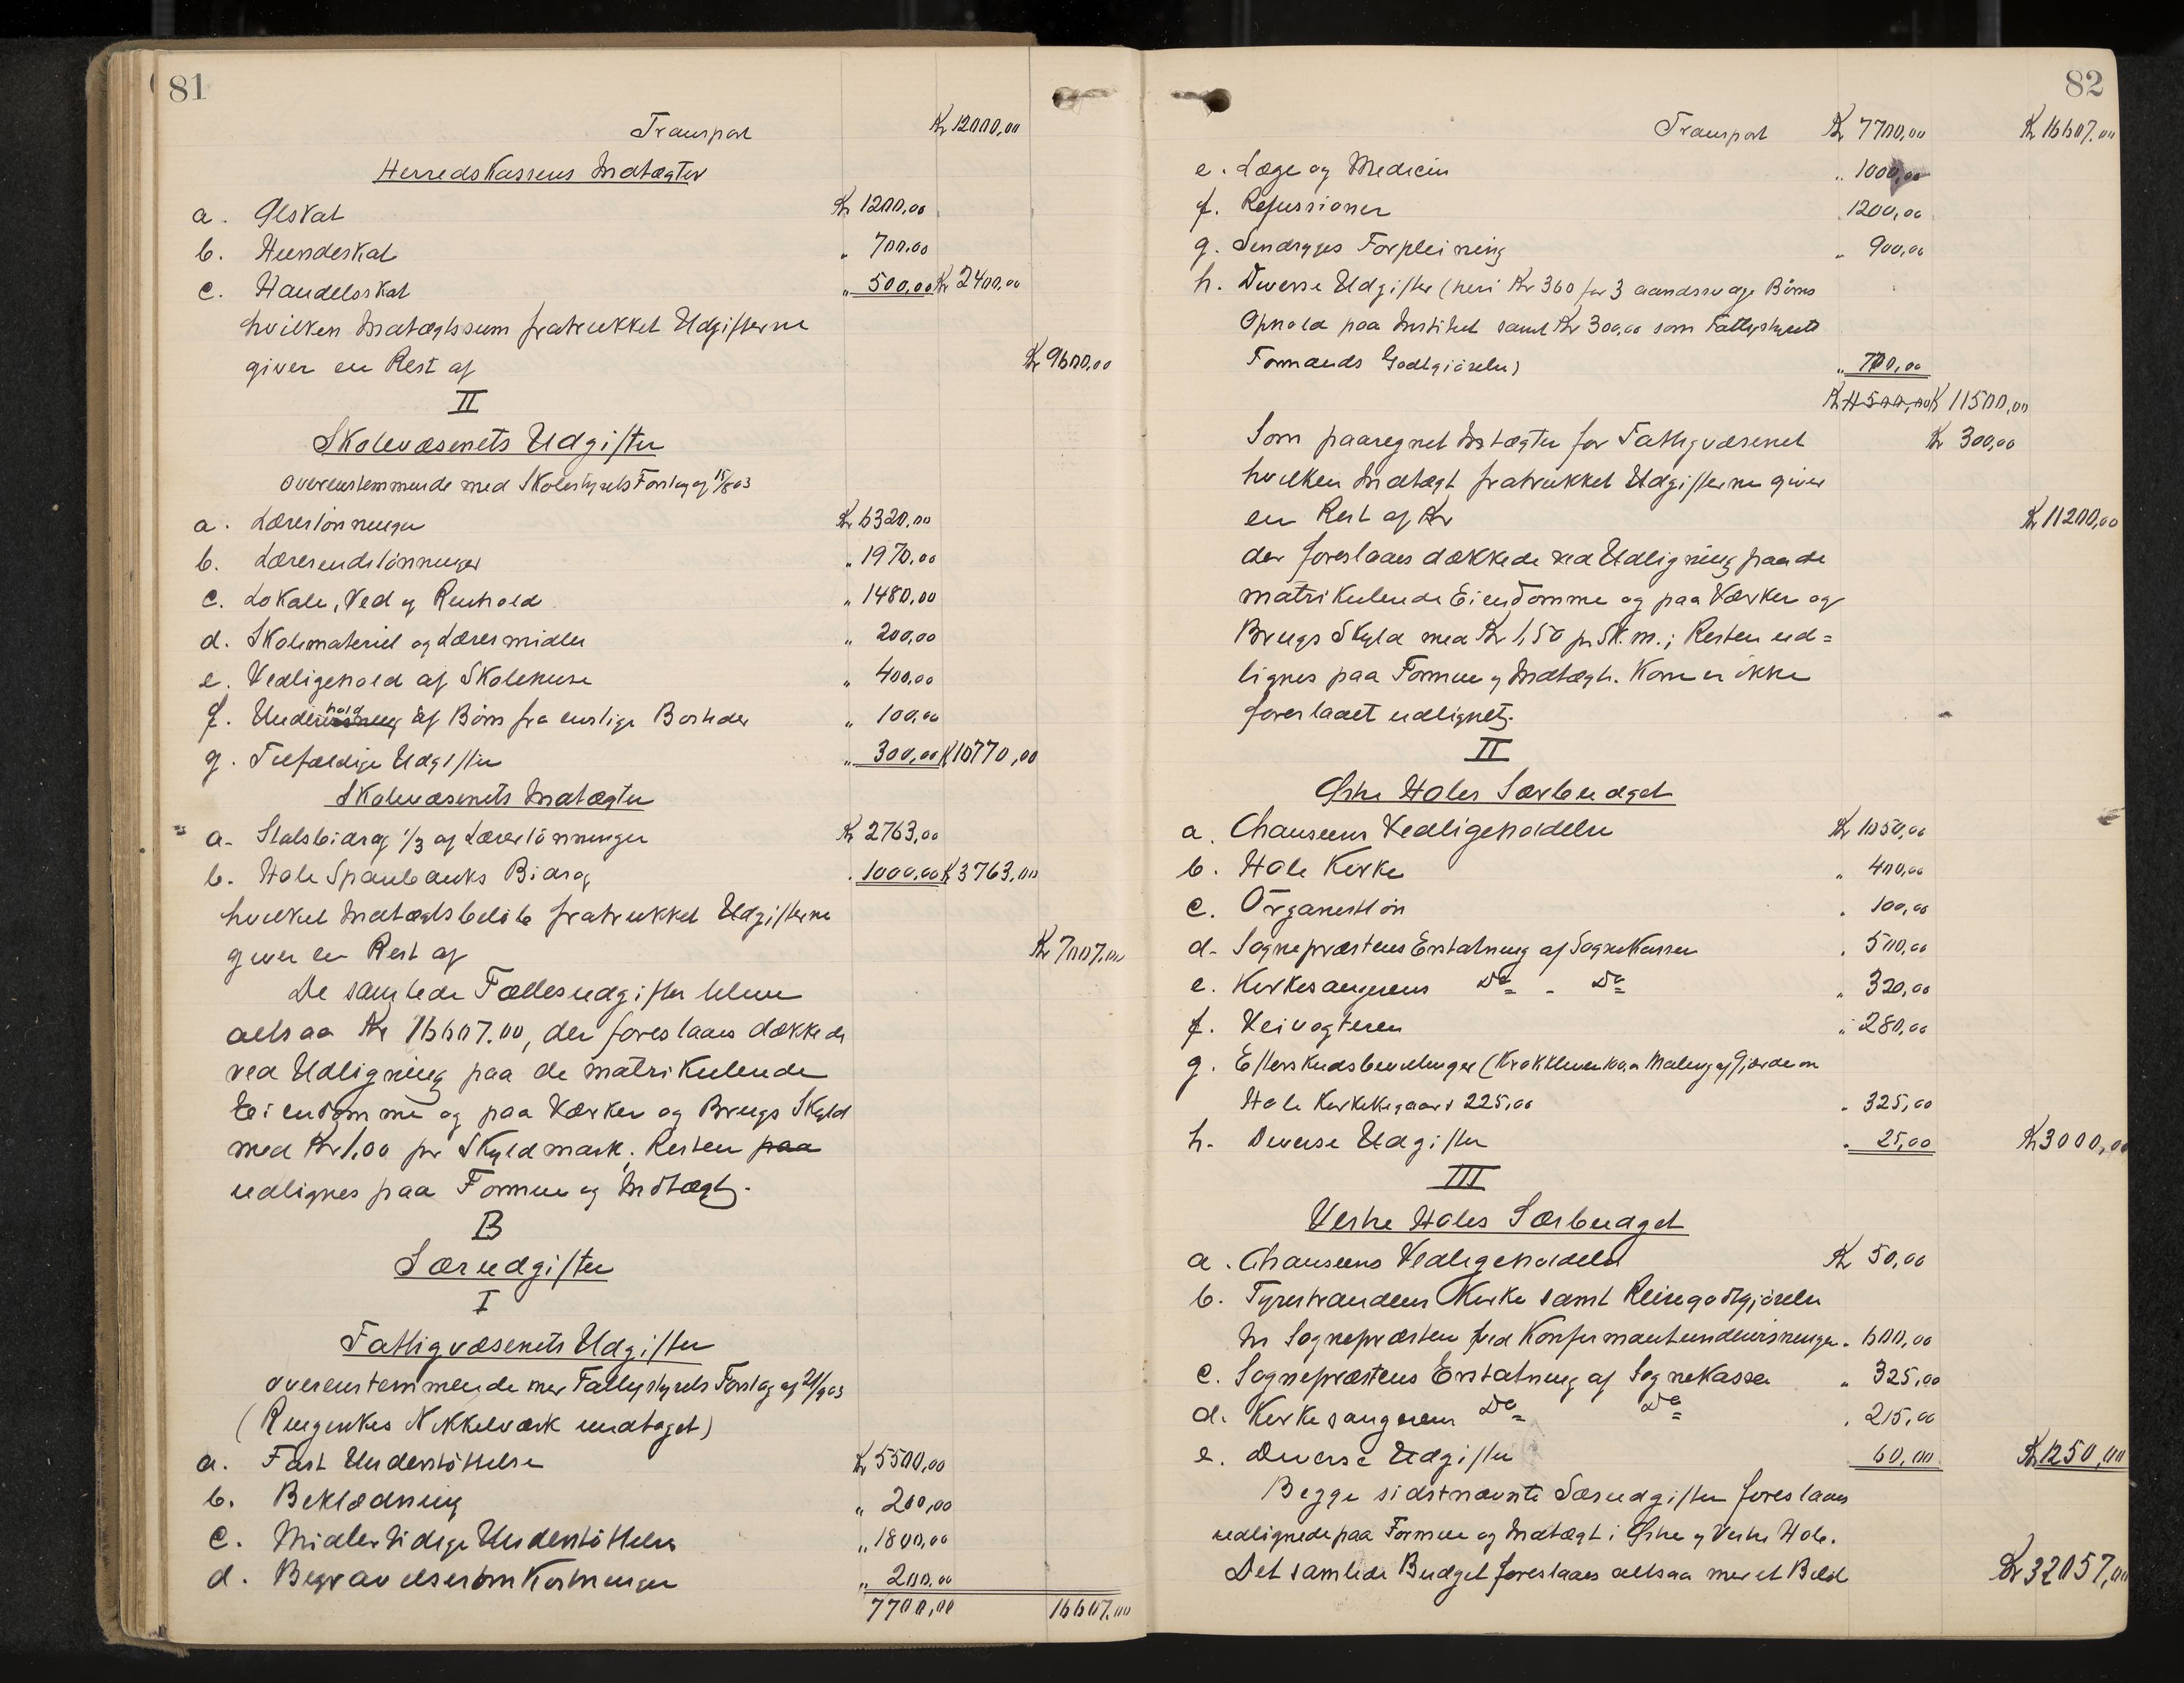 81
Transport Kr 12000,00
Herredskassens Indtægter
a. Ølskat Kr 1200,00
b. Hundeskat " 700.00
c. Handelsskat " 500,00 Kr 2400,00
hvilken Indtægtssum fratrukket Udgifterne
giver en Rest af Kr 9600,00
II
Skolevæsenets Udgifter
overenstemmende med Skolestyrets Forslag af 15/8 03
a. Lærerlönninger Kr 6320.00
b. Lærerindelönninger " 1970.00
c. Lokale, Ved og Renhold " 1480,00
d. Skolemateriel og Læremidler " 200,00
e. Vedligehold af Skolehuse " 400,00
f. Underhold af Börn fra enslige Bosteder " 100,00
g. Tilfældige Udgifter " 300,00 Kr 10770,00
Skolevæsenets Indtægter
a. Statsbidrag 1/3 af Lærerlönninger Kr 2763,00
b. Hole Sparebanks Bidrag " 1000,00 Kr 3763,00
hvilket Indtægtsbelöb fratrukket Udgifterne
giver en Rest af Kr 7007.00
De samlede Fællesudgifter bliver
altsaa Kr 16607.00, der foreslaaes dækkede
ved Udligning paa de matrikulerede
Eiendomme og paa Værker og Brugs Skyld
med Kr 1,00 pr Skyldmark; Resten paa
udlignes paa Formue og Indtægt.
B
Særudgifter
I
Fattigvæsenets Udgifter
overenstemmende med Fattigstyrets Forslag af 21/9 03
(Ringerikes Nikkelværk undtaget)
a. Fast Understöttelse Kr 5500,00
b. Beklædning " 200,00
c. Midlertidige Understöttelser " 1800,00
d. Begravelsesomkostninger " 200.00
7700,00 16607.00
82
Transport Kr 7700,00 Kr 16607.00
e. Læge og Medicin " 1000,00
f. Refussioner 1200,00
g. Sindsyges Forpleining " 900,00
h. Diverse Udgifter (heri Kr 360 for 3 aandssvage Börns
Ophold paa Institut samt Kr 300,00 som Fattigstyrets
Formands Godtgjörelse) " 700,00
Kr 11500,00 Kr 11500,00
Som paaregnet Indtægter for Fattigvæsenet Kr 300,00
hvilken Indtægt fratrukket Udgifterne giver
en Rest af Kr Kr 11200,00
der foreslaaes dækkede ved Udligning paa de
matrikulerede Eiendomme og paa Værker og
Brugs Skyld med Kr 1,50 pr Sk.m.; Resten ud=
lignes paa Formue og Indtægt. Korn er ikke
foreslaaet udlignet.
II
Östre Holes Særbudget
a. Chauseens Vedligeholdelse Kr 1050,00
b. Hole Kirke " 400,00
c. Organistlön " 100,00
d. Sogneprestens Erstatning af Sognekassen " 500,00
e. Kirkesangerens Do - Do " 320,00
f. Veivogteren " 280,00
g. Efterskudsbevilninger (Krokkleven 100, a Maling af Gjærde om
Hole Kirkekegaard 225,00 " 325,00
h. Diverse Udgifter " 25,00 Kr 3000,00
III
Vestre Holes Særbudget
a. Chauseens Vedligeholdelse Kr 50,00
b. Tyrestrandens Kirke samt Reisegodtgjörelse
til Sognepresten ved Konfirmantundervisningen " 600,00
c. Sogneprestens Erstatning af Sognekassen " 325,00
d. Kirkesangerens Do Do " 215,00
e. Diverse Udgifter 60,00 Kr 1250,00
Begge sidstnævnte Særudgifter foreslaaes
udlignede paa Formue og Indtægt i Östre og Vestre Hole.
Det samlede Budget foreslaaes altsaa med et Belöb Kr 32057,00